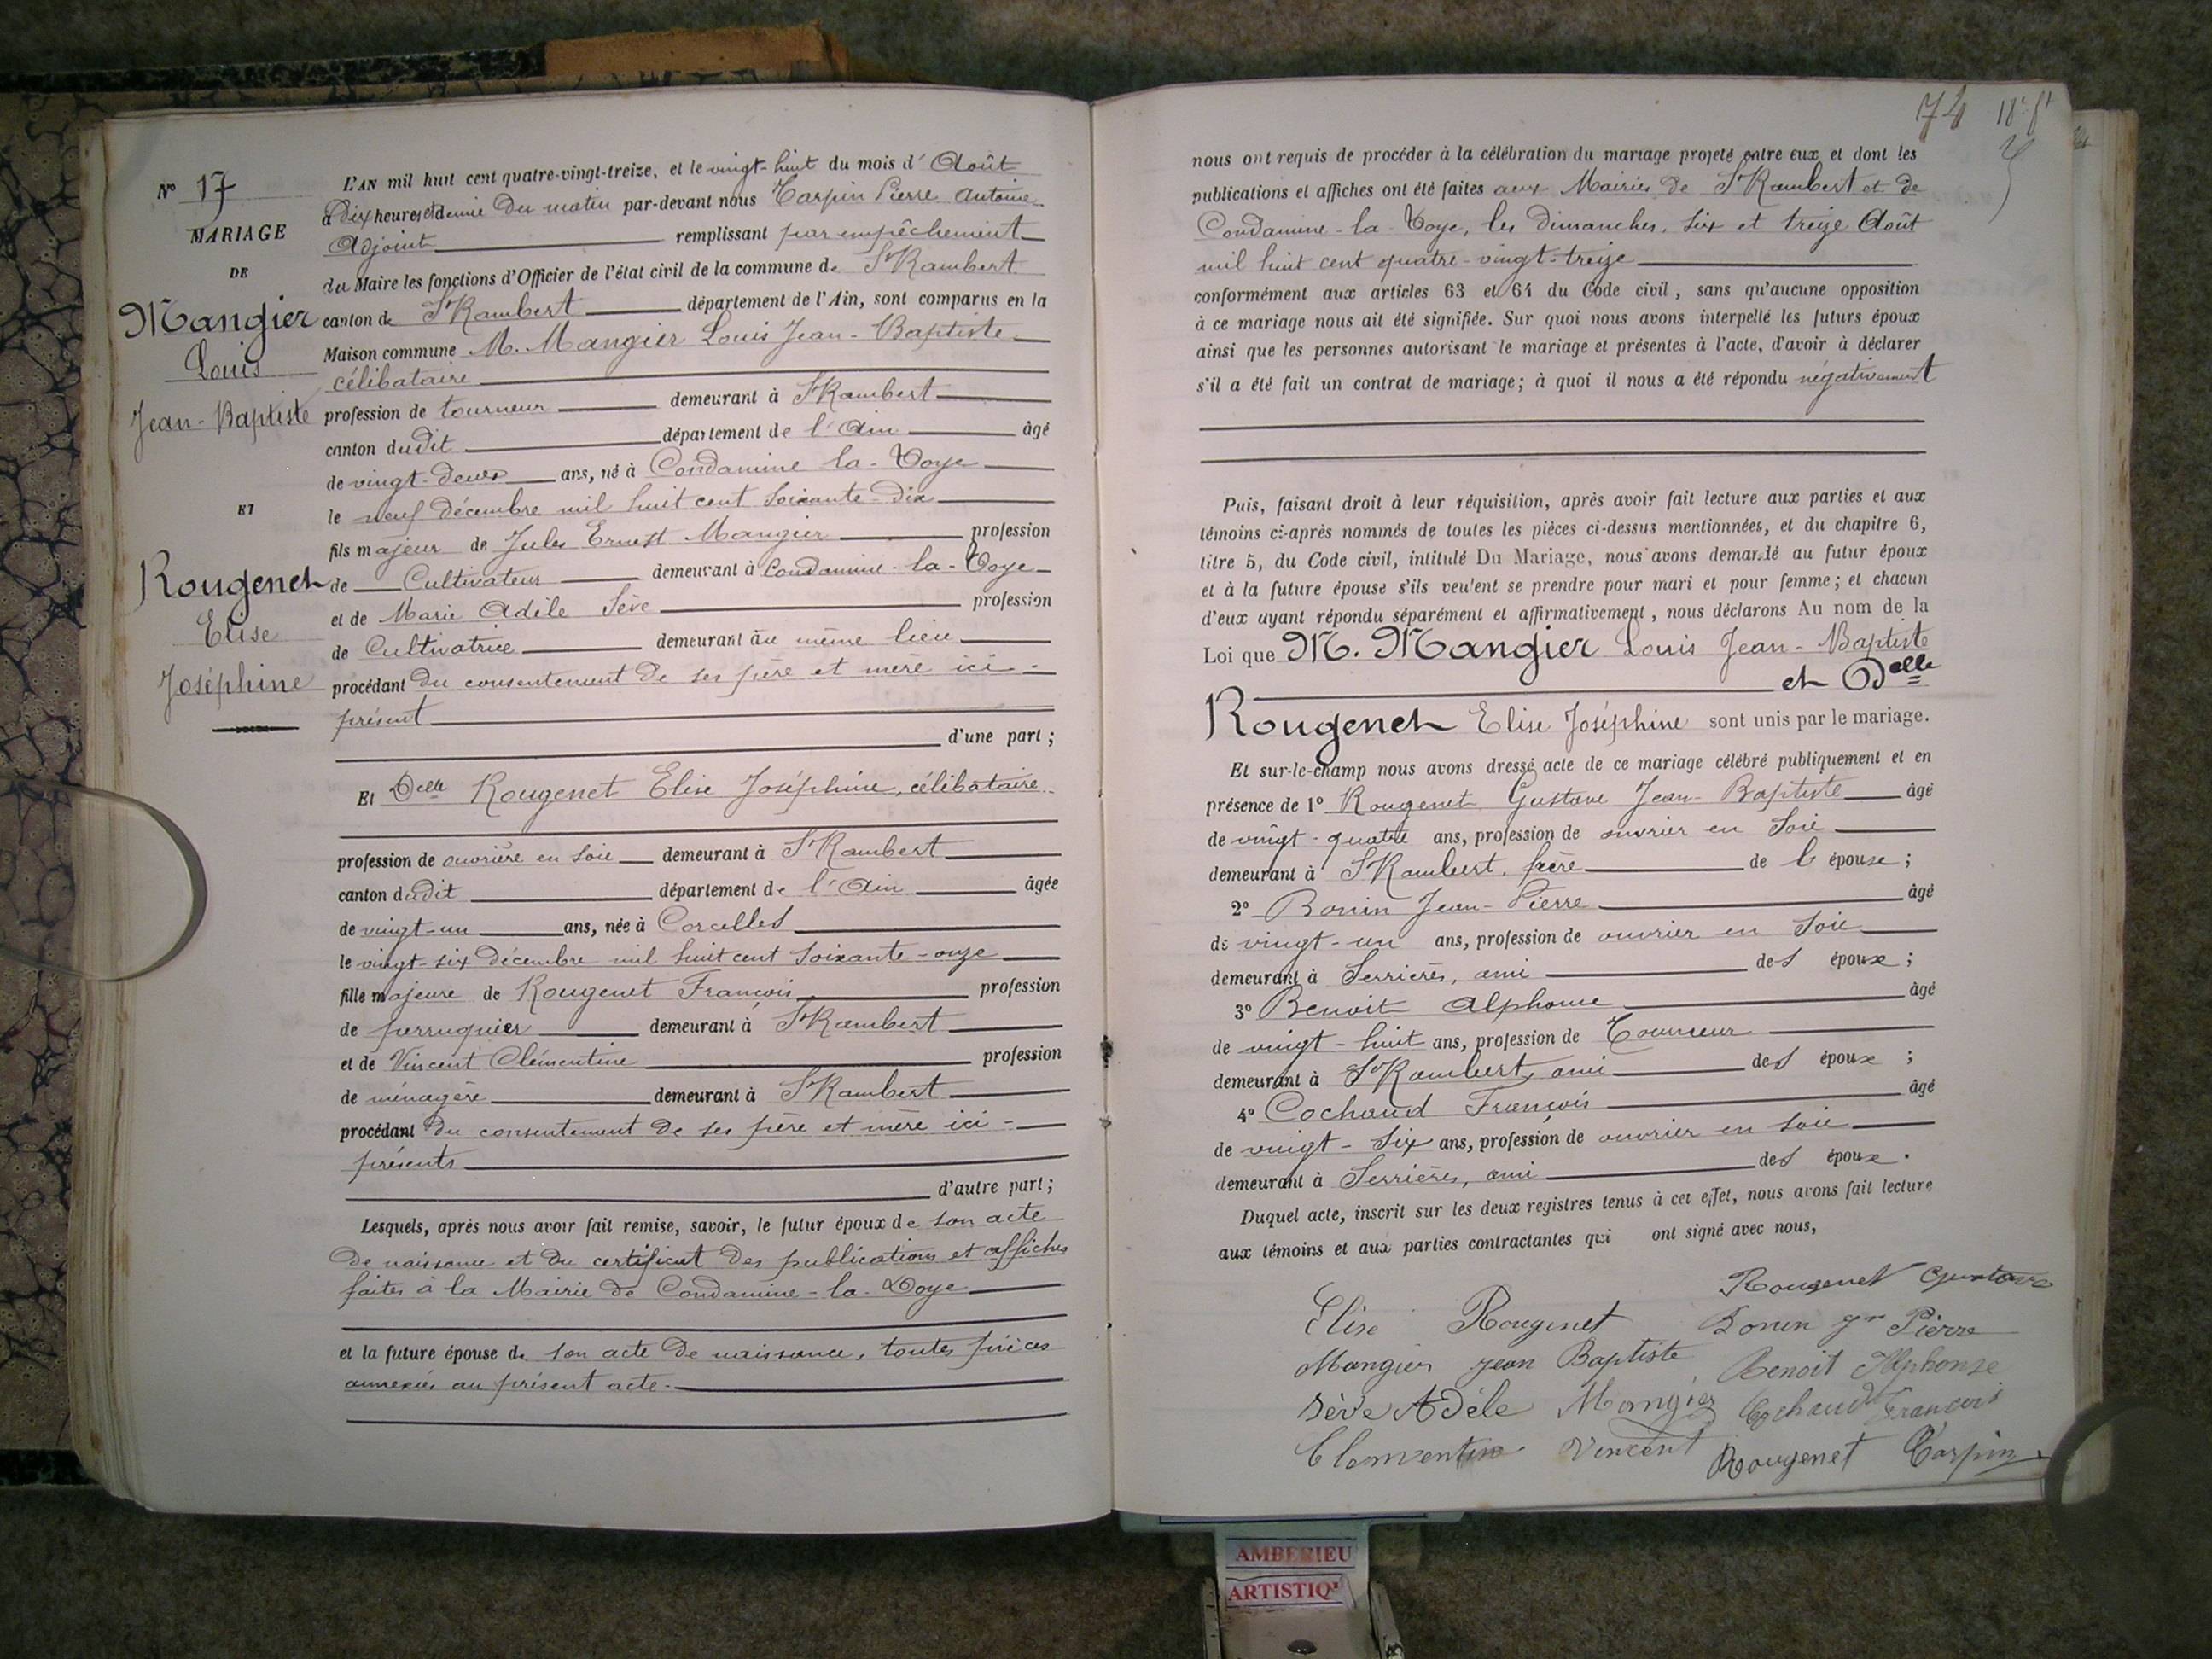 N° 17
MARIAGE
DE
Mangier
Louis
Jean-Baptiste
ET
Rougenet
Elise
Joséphine
L'AN mil huit cent quatre-vingt-treize, et le vingt-huit du mois d'Août
à dix heures et demie du matin par-devant nous Carpin Pierre Antoine
Adjoint remplissant par empêchement
du Maire les fonctions d'Officier de l'état civil de la commune de St Rambert
canton de St Rambert département de l'Ain, sont comparus en la
Maison commune M. Mangier Louis Jean-Baptiste
célibataire
profession de tourneur demeurant à St Rambert
canton dudit département de l'Ain âgé
de vingt-deux ans, né à Condamine la-Doye
le neuf décembre mil huit cent soixante-dix
fils majeur de Jules Ernest Mangier profession
de Cultivateur demeurant à Condamine-la-Doye
et de Marie Adèle Sève profession
de Cultivatrice demeurant au même lieu
procédant du consentement de ses père et mère ici-
présent
d'une part ;
Et Delle Rougenet Elise Joséphine, célibataire
profession de ouvrière en soie demeurant à St Rambert
canton dudit département de l'Ain âgée
de vingt-un ans, née à Corcelles
le vingt-six décembre mil huit cent soixante-onze
fille majeure de Rougenet François profession
de perruquier demeurant à St Rambert
et de Vincent Clémentine profession
de ménagère demeurant à St Rambert
procédant du consentement de ses père et mère ici-
présents
d'autre part ;
Lesquels, après nous avoir fait remise, savoir, le futur époux de son acte
de naissance et du certificat des publications et affiches
faites à la Mairie de Condamine-la-Doye
et la future épouse de son acte de naissance, toutes pièces
annexées au présent acte.
74
nous ont requis de procéder à la célébration du mariage projeté entre eux et dont les
publications et affiches ont été faites aux Mairies de St Rambert et de
Condamine-la-Doye, les dimanches, six et treize Août
mil huit cent quatre-vingt-treize
conformément aux articles 63 et 64 du Code civil, sans qu'aucune opposition
à ce mariage nous ait été signifiée. Sur quoi nous avons interpellé les futurs époux
ainsi que les personnes autorisant le mariage et présentes à l'acte, d'avoir à déclarer
s'il a été fait un contrat de mariage; à quoi il nous a été répondu négativement
Puis, faisant droit à leur réquisition, après avoir fait lecture aux parties et aux
témoins ci-après nommés de toutes les pièces ci-dessus mentionnées, et du chapitre 6,
titre 5, du Code civil, intitulé Du Mariage, nous avons demandé au futur époux
et à la future épouse s'ils veulent se prendre pour mari et pour femme; et chacun
d'eux ayant répondu séparément et affirmativement, nous déclarons Au nom de la
Loi que M. Mangier Louis Jean-Baptiste
et Delle
Rougenet Elise Joséphine sont unis par le mariage.
Et sur-le-champ nous avons dressé acte de ce mariage célébré publiquement et en
présence de 1° Rougenet Gustave Jean-Baptiste âgé
de vingt-quatre ans, profession de ouvrier en soie
demeurant à St Rambert, frère de l'épouse ;
2° Bonin Jean-Pierre âgé
de vingt-un ans, profession de ouvrier en soie
demeurant à Serrières, ami des époux ;
3° Benoit Alphonse âgé
de vingt-huit ans, profession de Tourneur
demeurant à St Rambert, ami des époux ;
4° Cochaud François âgé
de vingt-six ans, profession de ouvrier en soie
demeurant à Serrières, ami des époux.
Duquel acte, inscrit sur les deux registres tenus à cet effet, nous avons fait lecture
aux témoins et aux parties contractantes qui ont signé avec nous,
Rougenet Gustave
Elise Rougenet Bonin Jn Pierre
Mangier Jean Baptiste Benoit Alphonse
Sève Adèle Mangier Cochaud François
Clementine Vincent Rougenet Carpin
AMBERIEU
ARTISTIQ